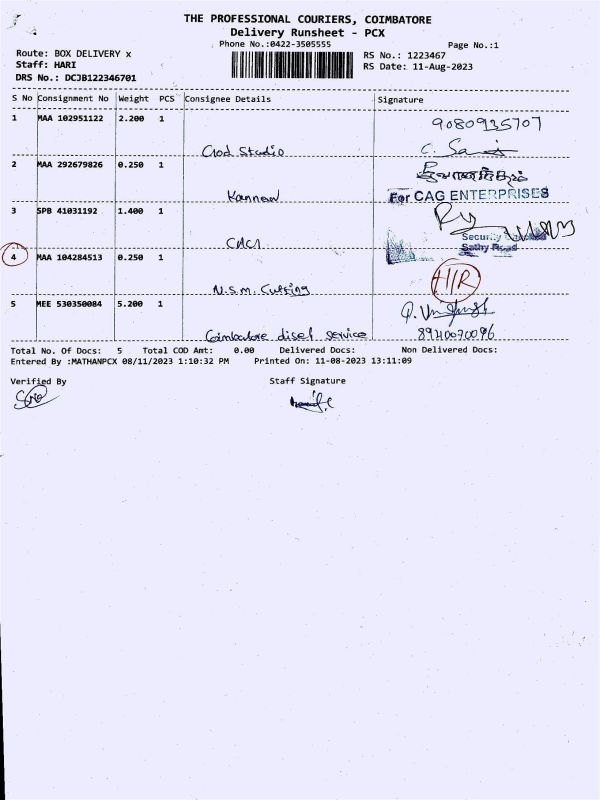 THE PROFESSIONAL COURIERS, COIMBATORE
Delivery Runsheet - PCX
Phone No.:0422-3505555 Page No.:1
Route: BOX DELIVERY x RS No.: 1223467
Staff: HARI RS Date: 11-Aug-2023
DRS No.: DCJB122346701
S No Consignment No Weight PCS Consignee Details Signature
1 MAA 102951122 2.200 1 9080935707
God Studio
2 MAA 292679826 0.250 1
Kannan For CAG ENTERPRISES
3 SPB 41031192 1.400 1
Security
CMCI Sathy Road
4 MAA 104284513 0.250 1 H/R
N.S.M. Cutting
5 MEE 530350084 5.200 1
Coimbatore disel service 8940070096
Total No. Of Docs: 5 Total COD Amt: 0.00 Delivered Docs: Non Delivered Docs:
Entered By :MATHANPCX 08/11/2023 1:10:32 PM Printed On: 11-08-2023 13:11:09
Verified By Staff Signature